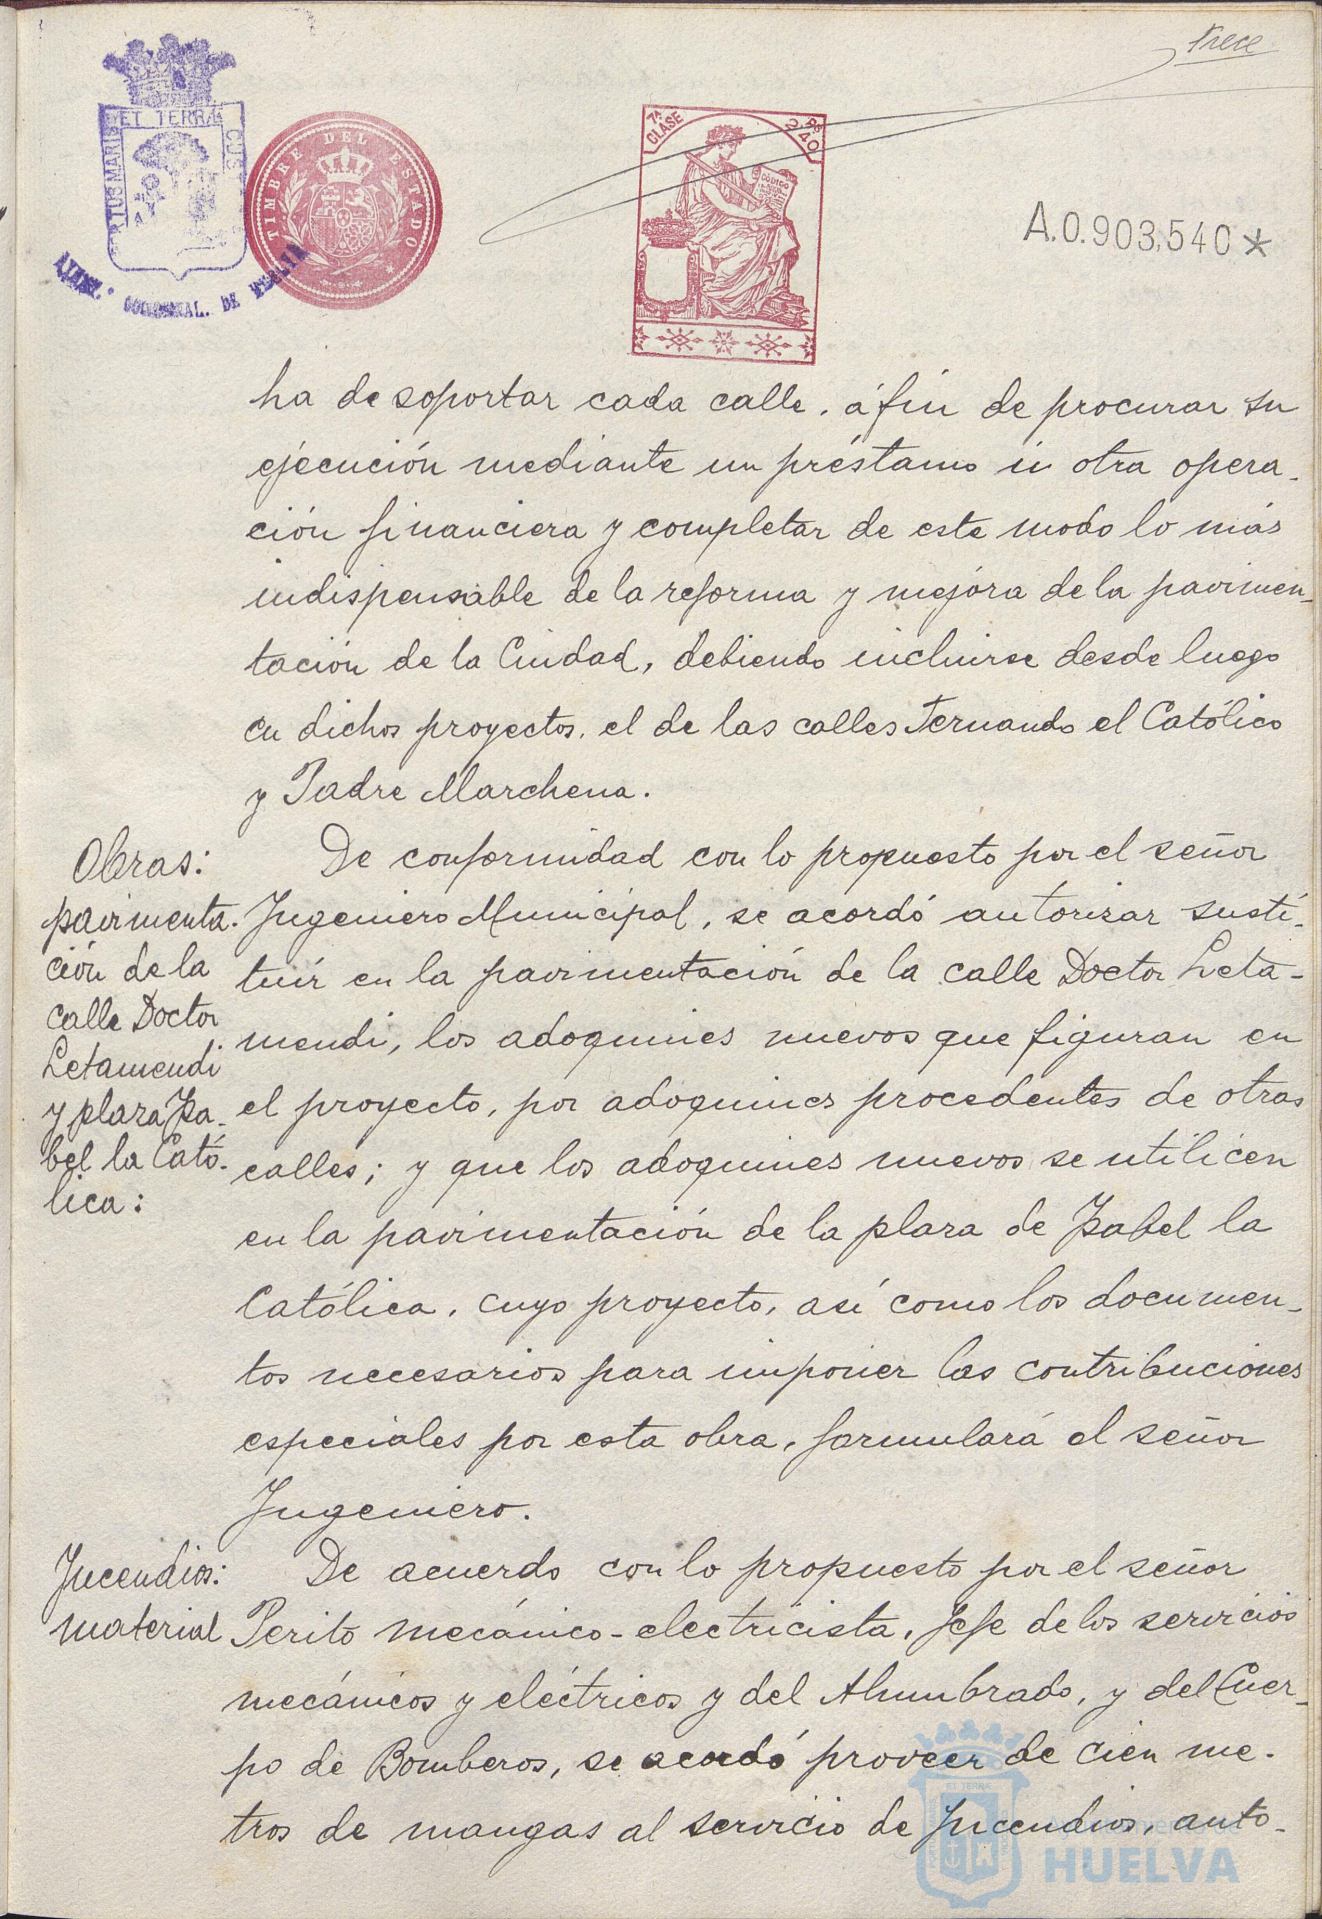 trece
ET TERRÆ CUS
TUS MARIS
AYUNT. CONSTITUCIONAL. DE HUELVA
TIMBRE DEL ESTADO
7ª CLASE
Ps 2'40
CÓDIGO
A.0.903,540*
ha de soportar cada calle, á fin de procurar su
ejecución mediante un préstamo ú otra opera-
ción financiera y completar de este modo lo más
indispensable de la reforma y mejora de la pavimen-
tación de la Ciudad, debiendo incluirse desde luego
en dichos proyectos, el de las calles Fernando el Católico
y Padre Marchena.
Obras:
pavimenta-
ción de la
calle Doctor
Letamendi
y plaza Isa-
bel la Cató-
lica:
De conformidad con lo propuesto por el señor
Ingeniero Municipal, se acordó autorizar susti-
tuír en la pavimentación de la calle Doctor Leta-
mendi, los adoquines nuevos que figuran en
el proyecto, por adoquines procedentes de otras
calles; y que los adoquines nuevos se utilicen
en la pavimentación de la plaza de Isabel la
Católica, cuyo proyecto, así como los documen-
tos necesarios para imponer las contribuciones
especiales por esta obra, formulará el señor
Ingeniero.
Incendios:
material
De acuerdo con lo propuesto por el señor
Perito mecánico-electricista, Jefe de los servicios
mecánicos y eléctricos y del Alumbrado, y del Cuer-
po de Bomberos, se acordó proveer de cien me-
tros de mangas al servicio de Incendios, auto-
Ayuntamiento de
HUELVA